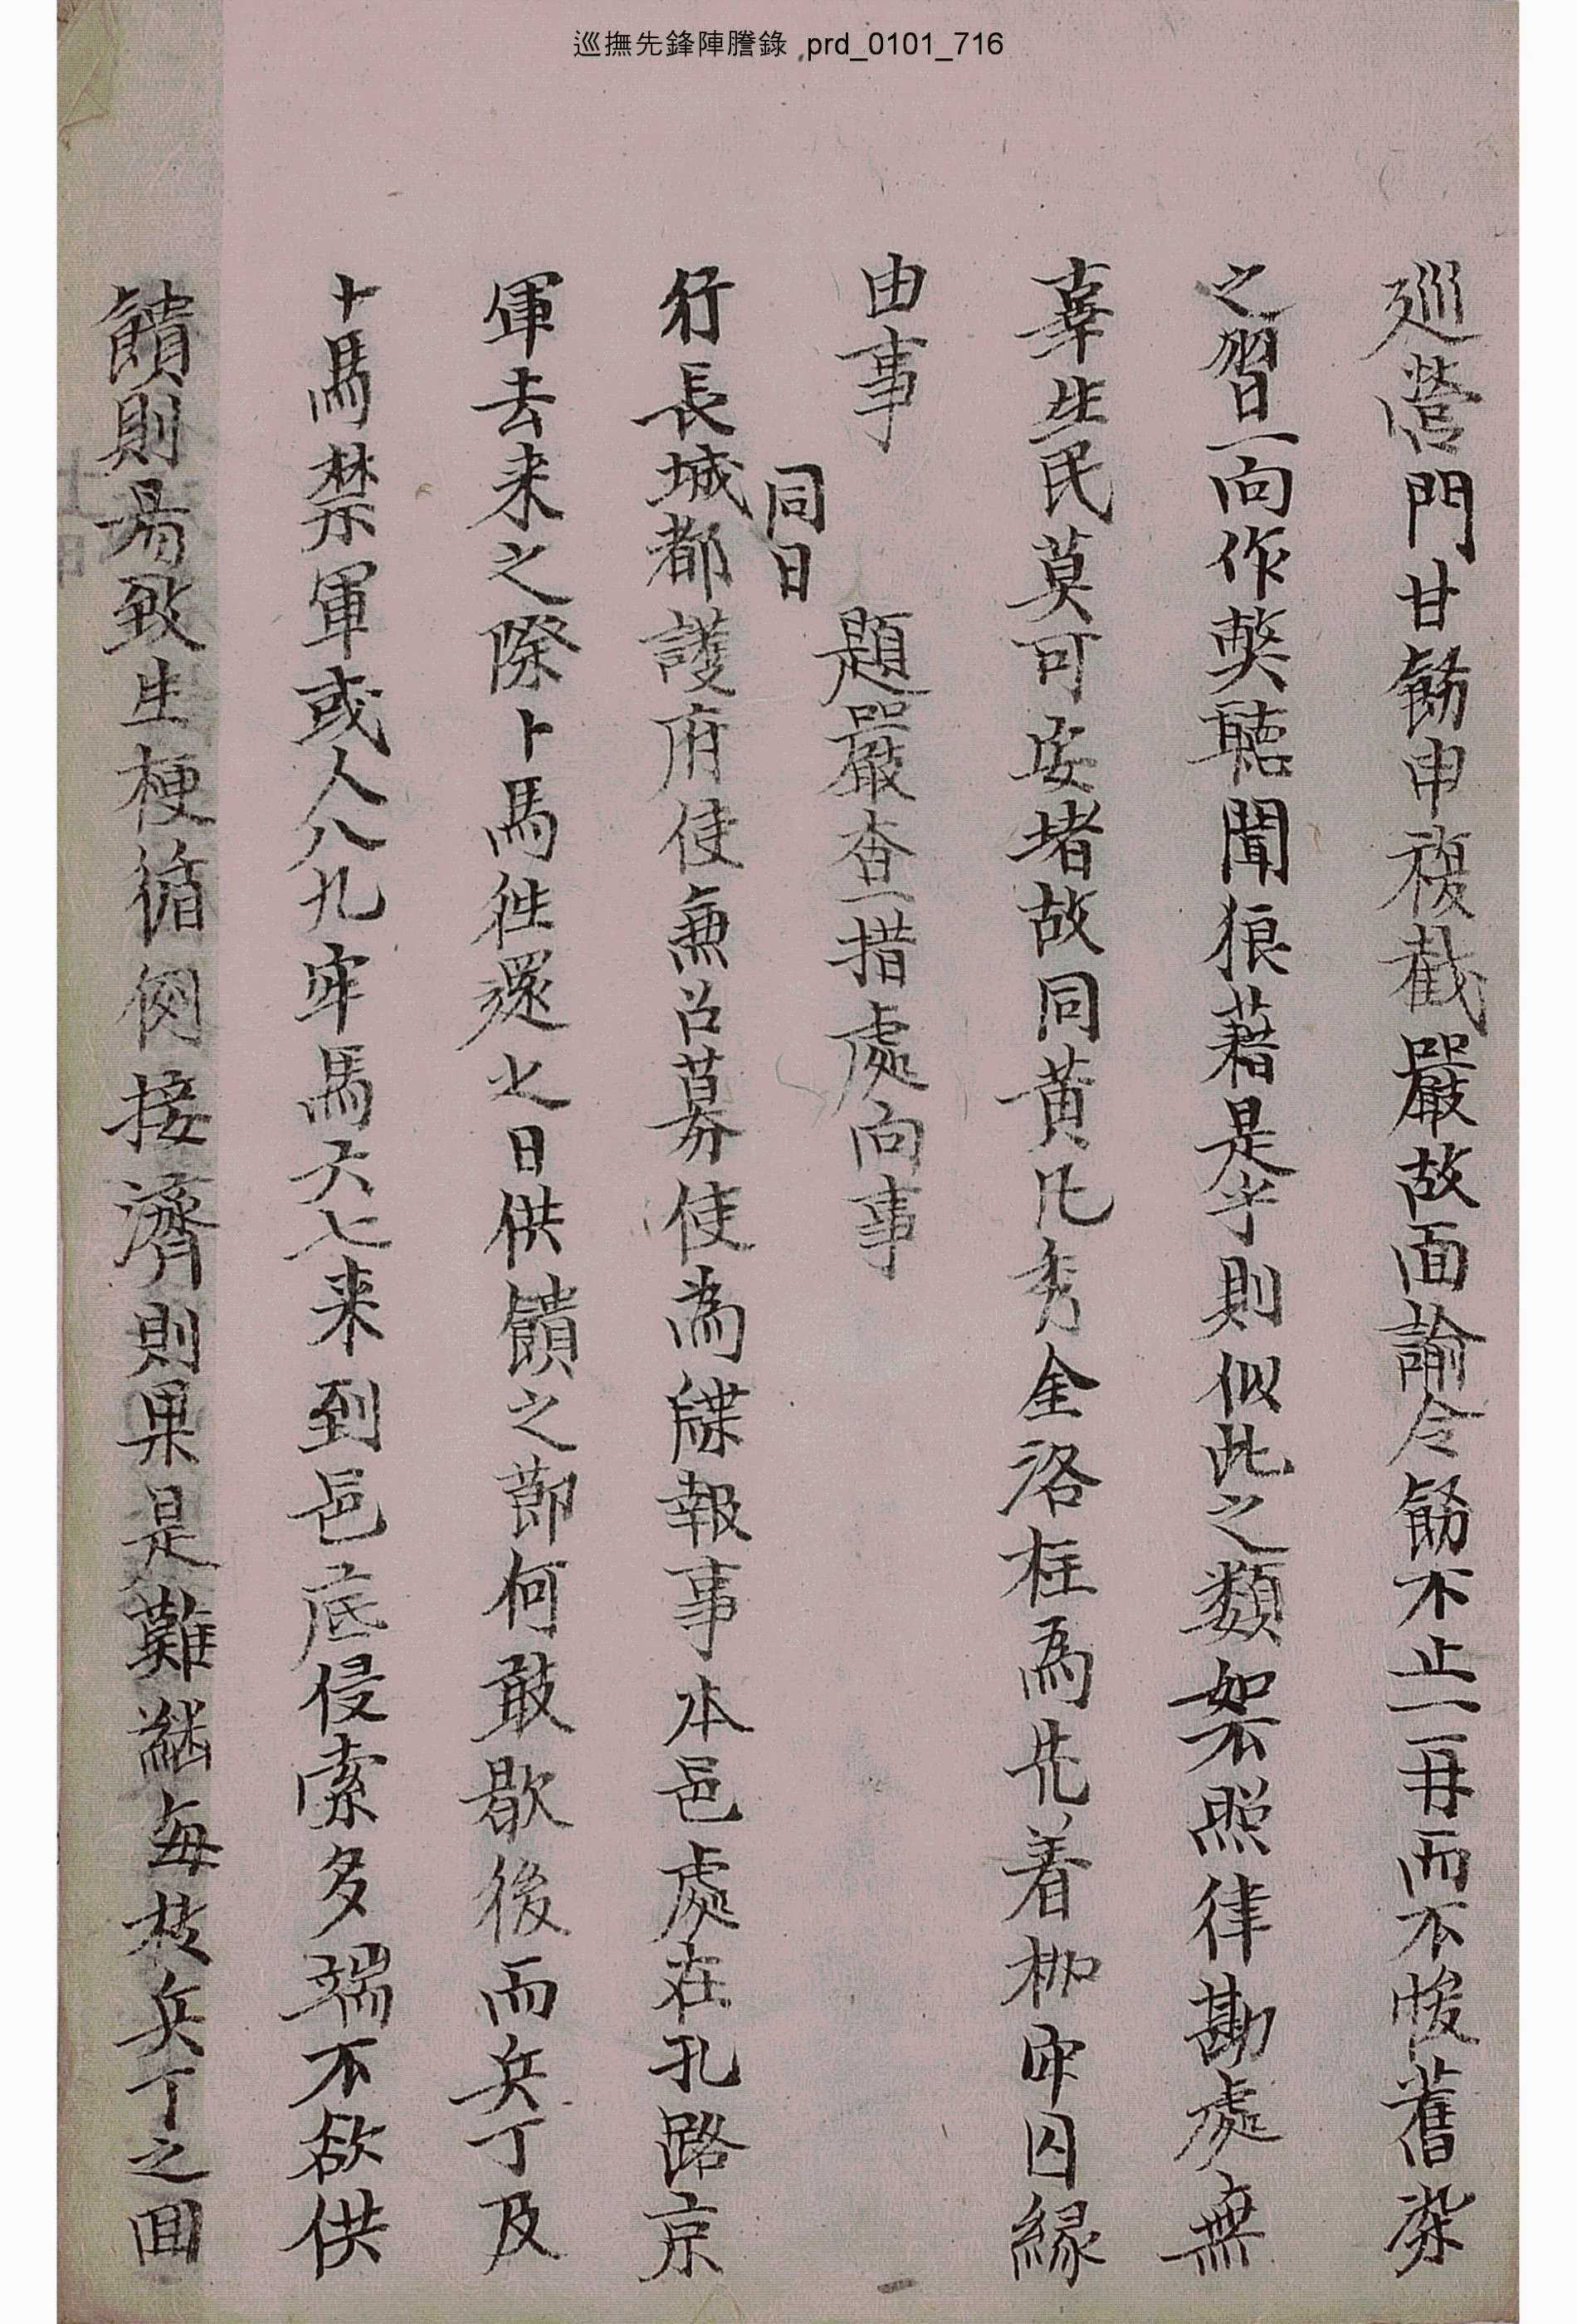 巡撫先鋒陣謄錄 prd_0101_716
廵營門甘飭申複截嚴故面諭令飭不止一再而不悛舊染
之習一向作獘聽聞狼藉是乎則似此之類如不照律勘處無
辜生民莫可安堵故同黃凡秀金洛柱爲先着枷牢囚緣
由事
同日
題嚴查措處向事
行長城都護府使兼召募使為牒報事本邑處在孔路京
軍去来之際卜馬徃還之日供饋之節何敢歇後而兵丁及
卜馬禁軍或人八九牢馬六七来到邑底侵索多端不欲供
饋則易致生梗循例接濟則果是難繼每校兵丁之囬